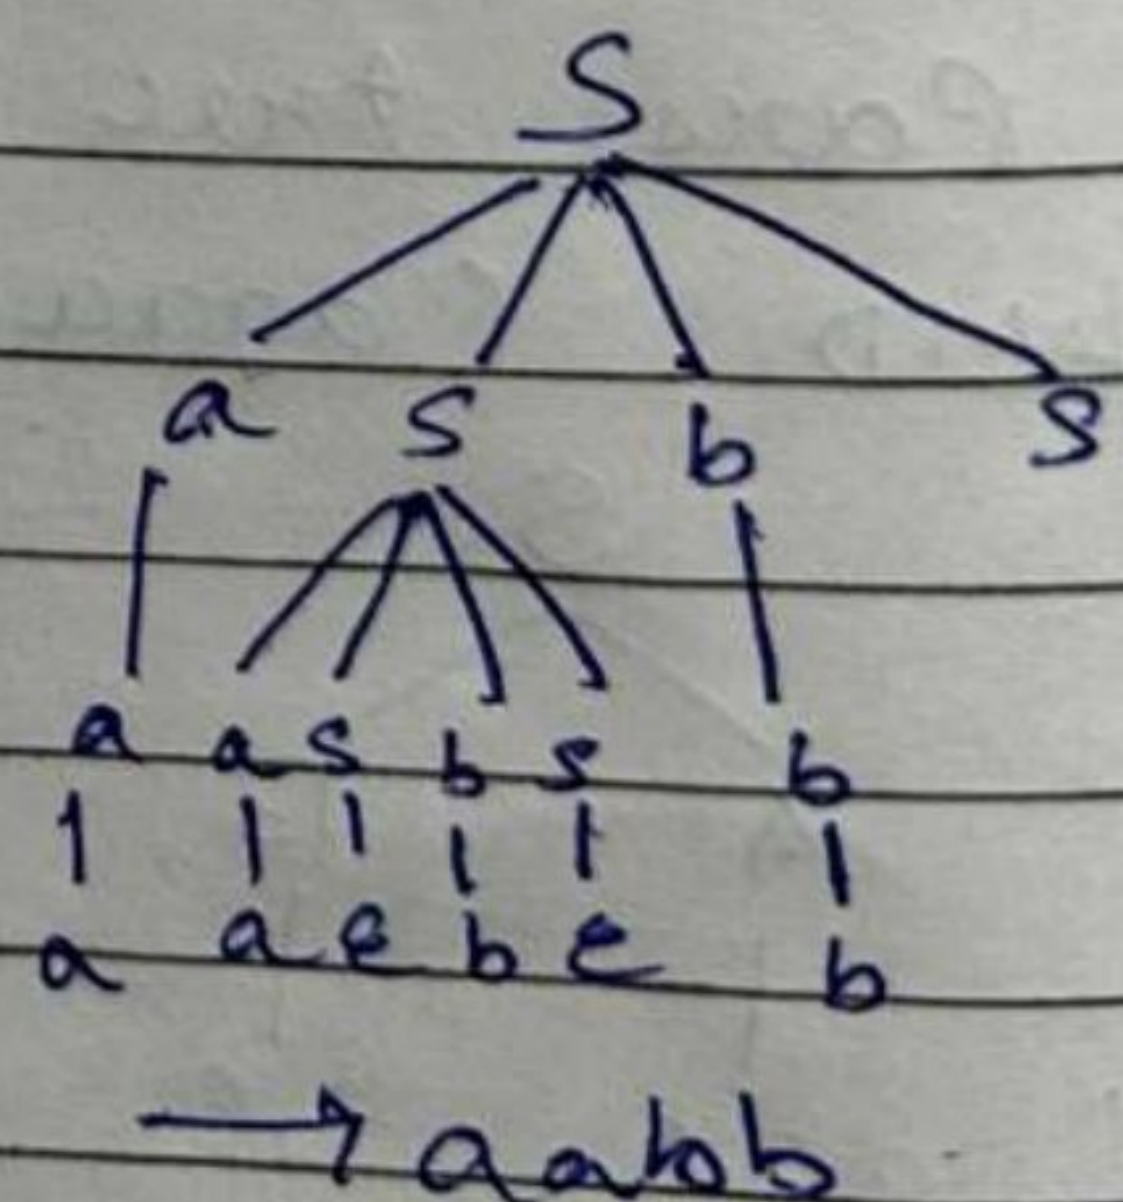 S
a S b S
a a S b S b
a a e b e b
→ aabb